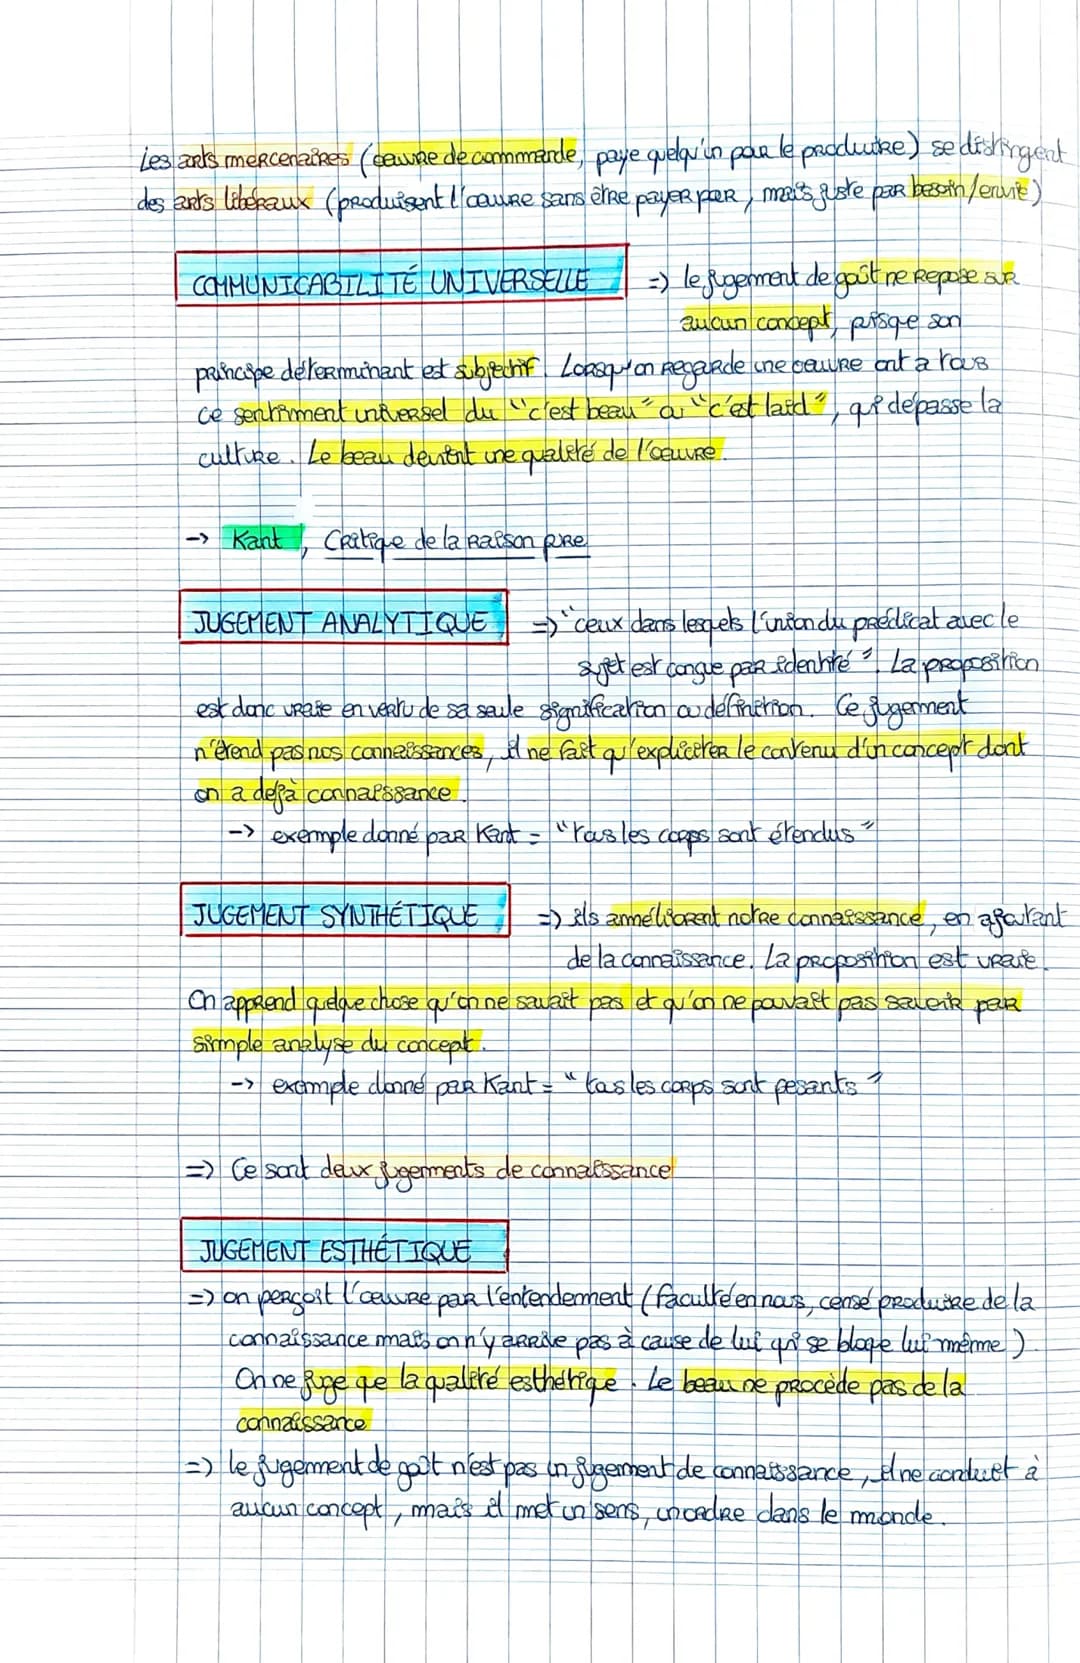 Les arts mercenaires (oeuvre de commande, paye quelqu'un pour le produire) se distingent
des arts libéraux (produisent l'oeuvre sans être payer pour, mais juste par besoin/envie)
COMMUNICABILITÉ UNIVERSELLE => le jugement de goût ne repose sur
aucun concept, puisque son
principe déterminant est subjectif. Lorsqu'on regarde une oeuvre ont a tous
ce sentiment universel du "c'est beau" ou "c'est laid", qui dépasse la
culture. Le beau devient une qualité de l'oeuvre.
-> Kant, Critique de la Raison pure
JUGEMENT ANALYTIQUE => "ceux dans lesquels l'union du prédicat avec le
sujet est conçue par identité". La proposition
est donc vraie en vertu de sa seule signification ou définition. Ce jugement
n'étend pas nos connaissances, il ne fait qu'expliciter le contenu d'un concept dont
on a déjà connaissance.
-> exemple donné par Kant = "tous les corps sont étendus"
JUGEMENT SYNTHÉTIQUE => ils amméliorent notre connaissance, en ajoutant
de la connaissance. La proposition est vraie.
On apprend quelque chose qu'on ne savait pas et qu'on ne pouvait pas savoir par
simple analyse du concept.
-> exemple donné par Kant = "tous les corps sont pesants"
=> Ce sont deux jugements de connaissance
JUGEMENT ESTHÉTIQUE
=> on perçoit l'oeuvre par l'entendement (faculté en nous, censé produire de la
connaissance mais on n'y arrive pas à cause de lui qui se bloque lui même).
On ne juge que la qualité esthétique. Le beau ne procède pas de la
connaissance
=> le jugement de goût n'est pas un jugement de connaissance, il ne conduit à
aucun concept, mais il met un sens, un ordre dans le monde.